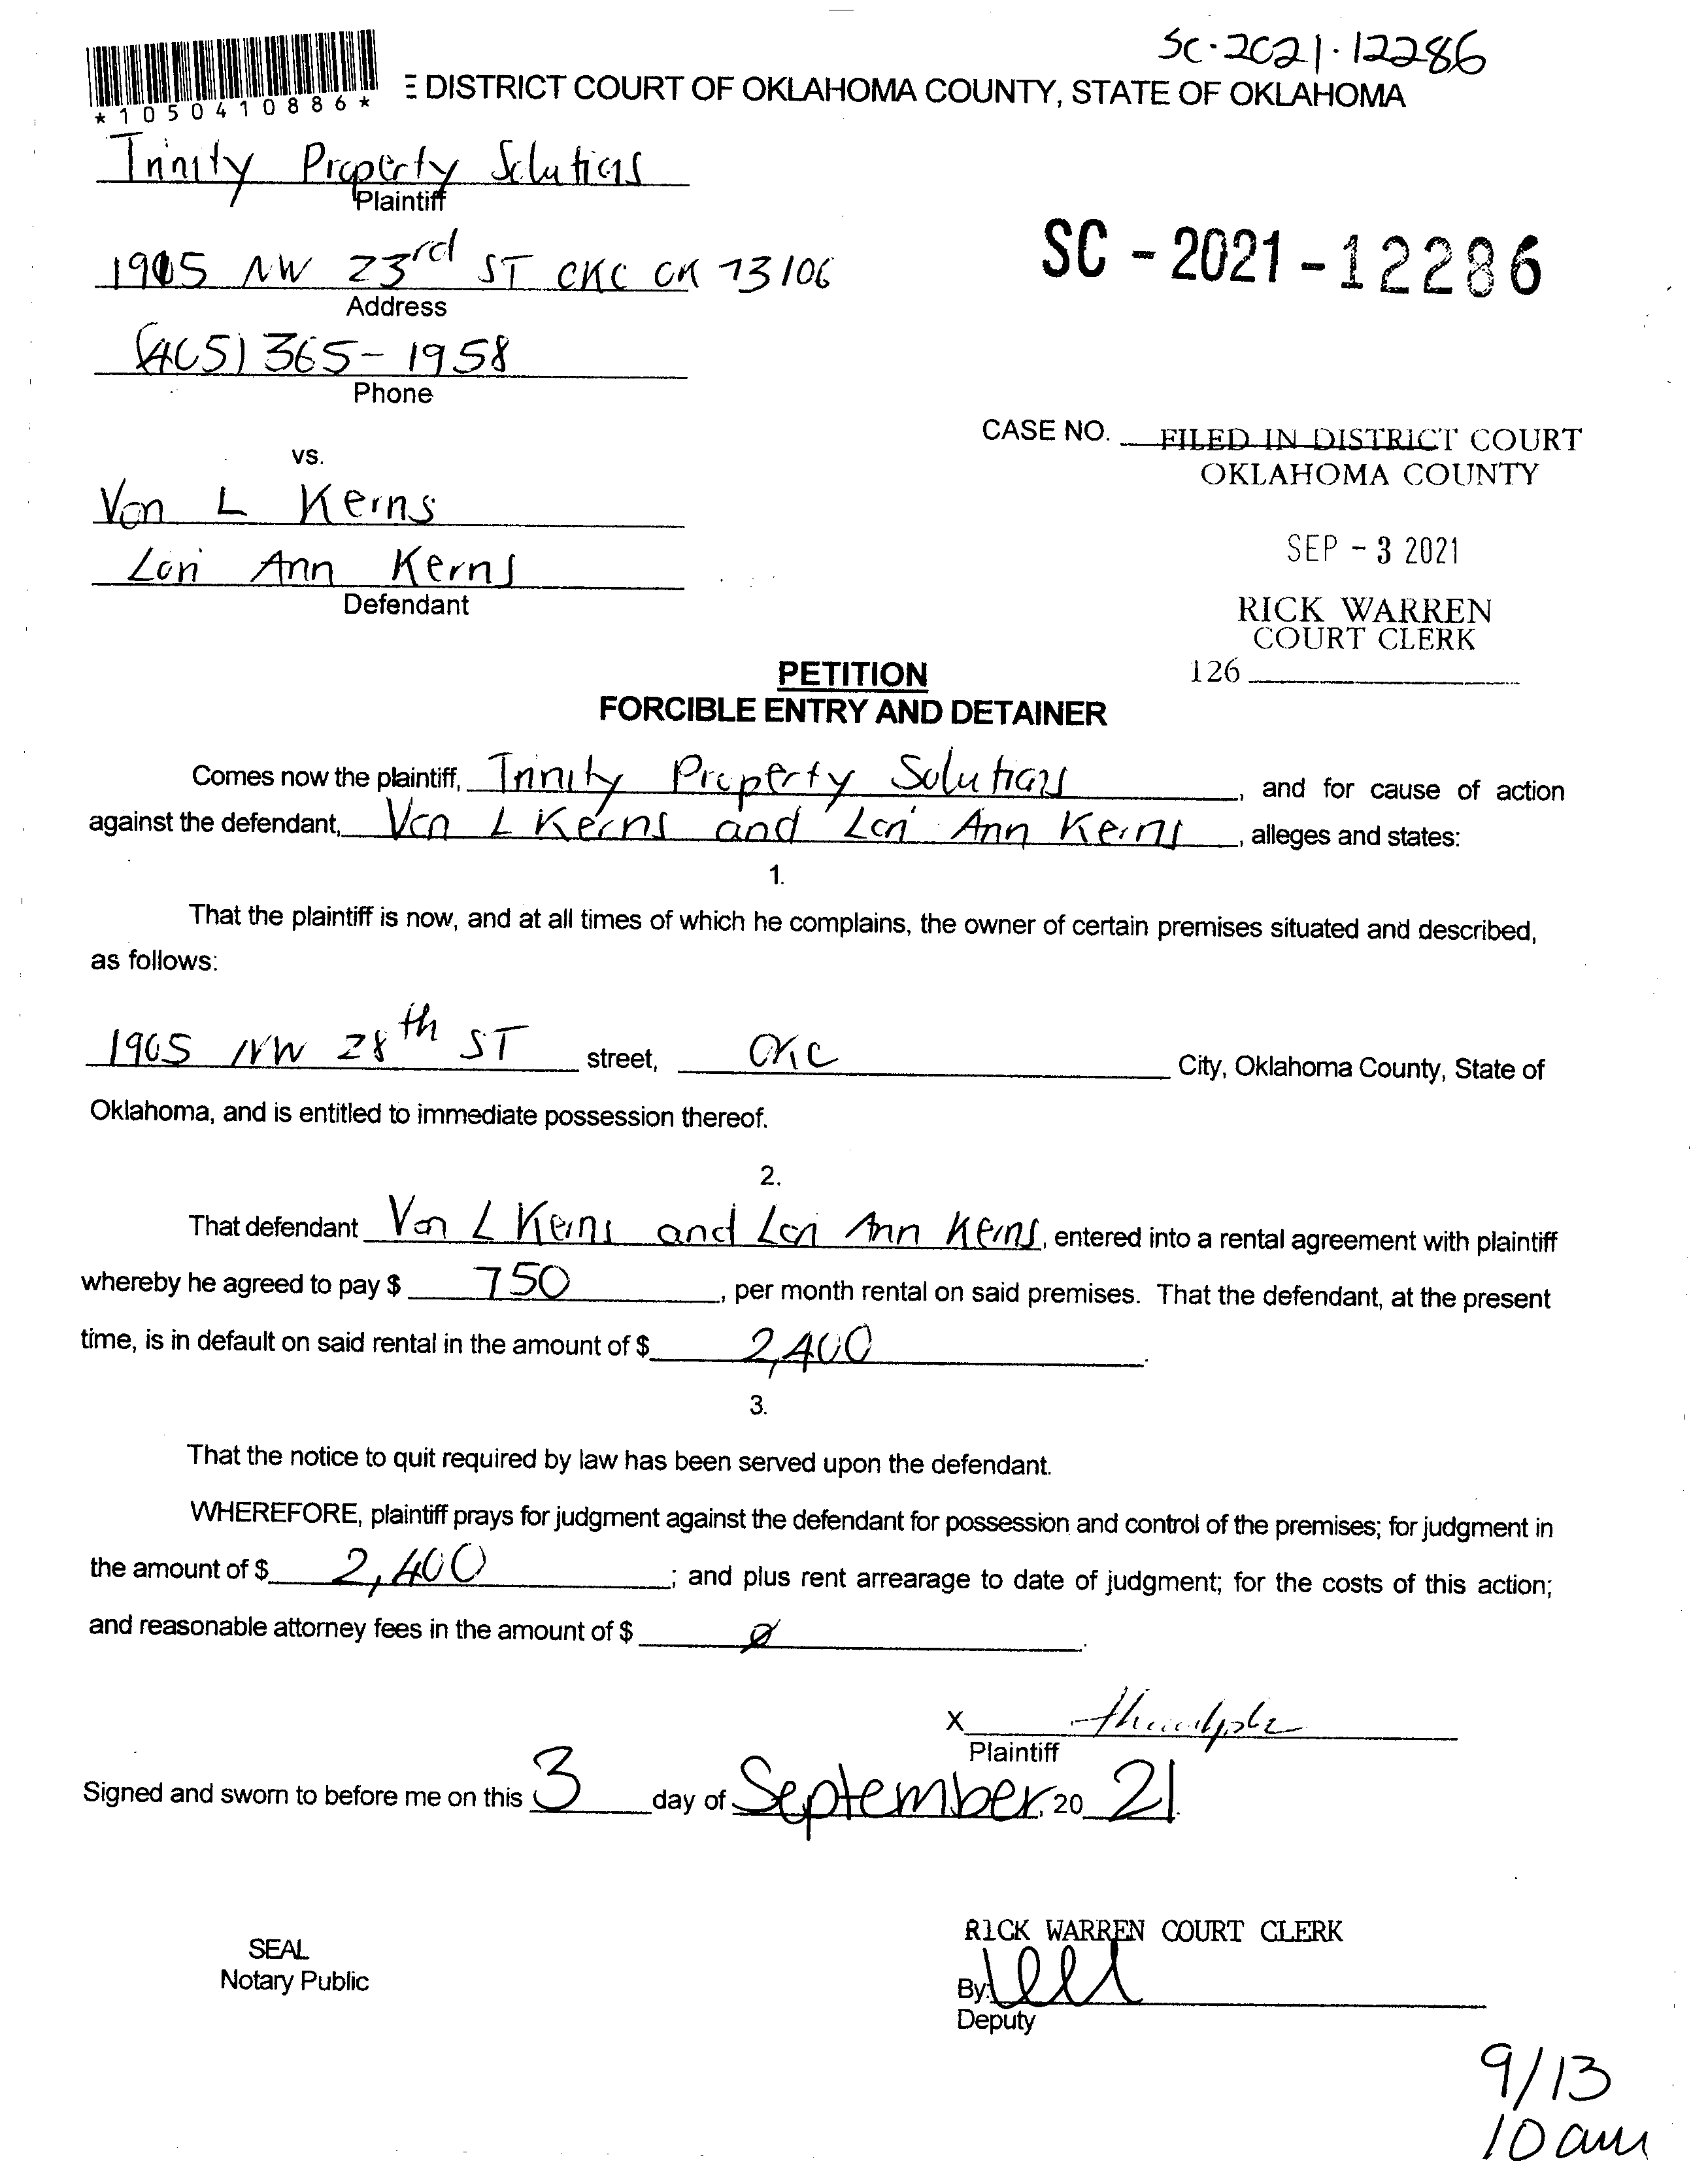 SC-2021-12286
*1050410886*
E DISTRICT COURT OF OKLAHOMA COUNTY, STATE OF OKLAHOMA
Trinity Property Solutions
Plaintiff
SC-2021-12286
1905 NW 23rd ST OKC OK 73106
Address
(405) 365-1958
Phone
CASE NO. FILED IN DISTRICT COURT
OKLAHOMA COUNTY
vs.
Von L Kerns
SEP - 3 2021
Lori Ann Kerns
Defendant
RICK WARREN
COURT CLERK
126
PETITION
FORCIBLE ENTRY AND DETAINER
Comes now the plaintiff, Trinity Property Solutions, and for cause of action
against the defendant, Von L Kerns and Lori Ann Kerns, alleges and states:
1.
That the plaintiff is now, and at all times of which he complains, the owner of certain premises situated and described,
as follows:
1905 NW 28th ST street, OKC City, Oklahoma County, State of
Oklahoma, and is entitled to immediate possession thereof.
2.
That defendant Von L Kerns and Lori Ann Kerns, entered into a rental agreement with plaintiff
whereby he agreed to pay $ 750, per month rental on said premises. That the defendant, at the present
time, is in default on said rental in the amount of $ 2,400.
3.
That the notice to quit required by law has been served upon the defendant.
WHEREFORE, plaintiff prays for judgment against the defendant for possession and control of the premises; for judgment in
the amount of $ 2,400; and plus rent arrearage to date of judgment; for the costs of this action;
and reasonable attorney fees in the amount of $ Ø.
X
Plaintiff
Signed and sworn to before me on this 3 day of September, 20 21.
RICK WARREN COURT CLERK
SEAL
Notary Public
By:
Deputy
9/13
10am